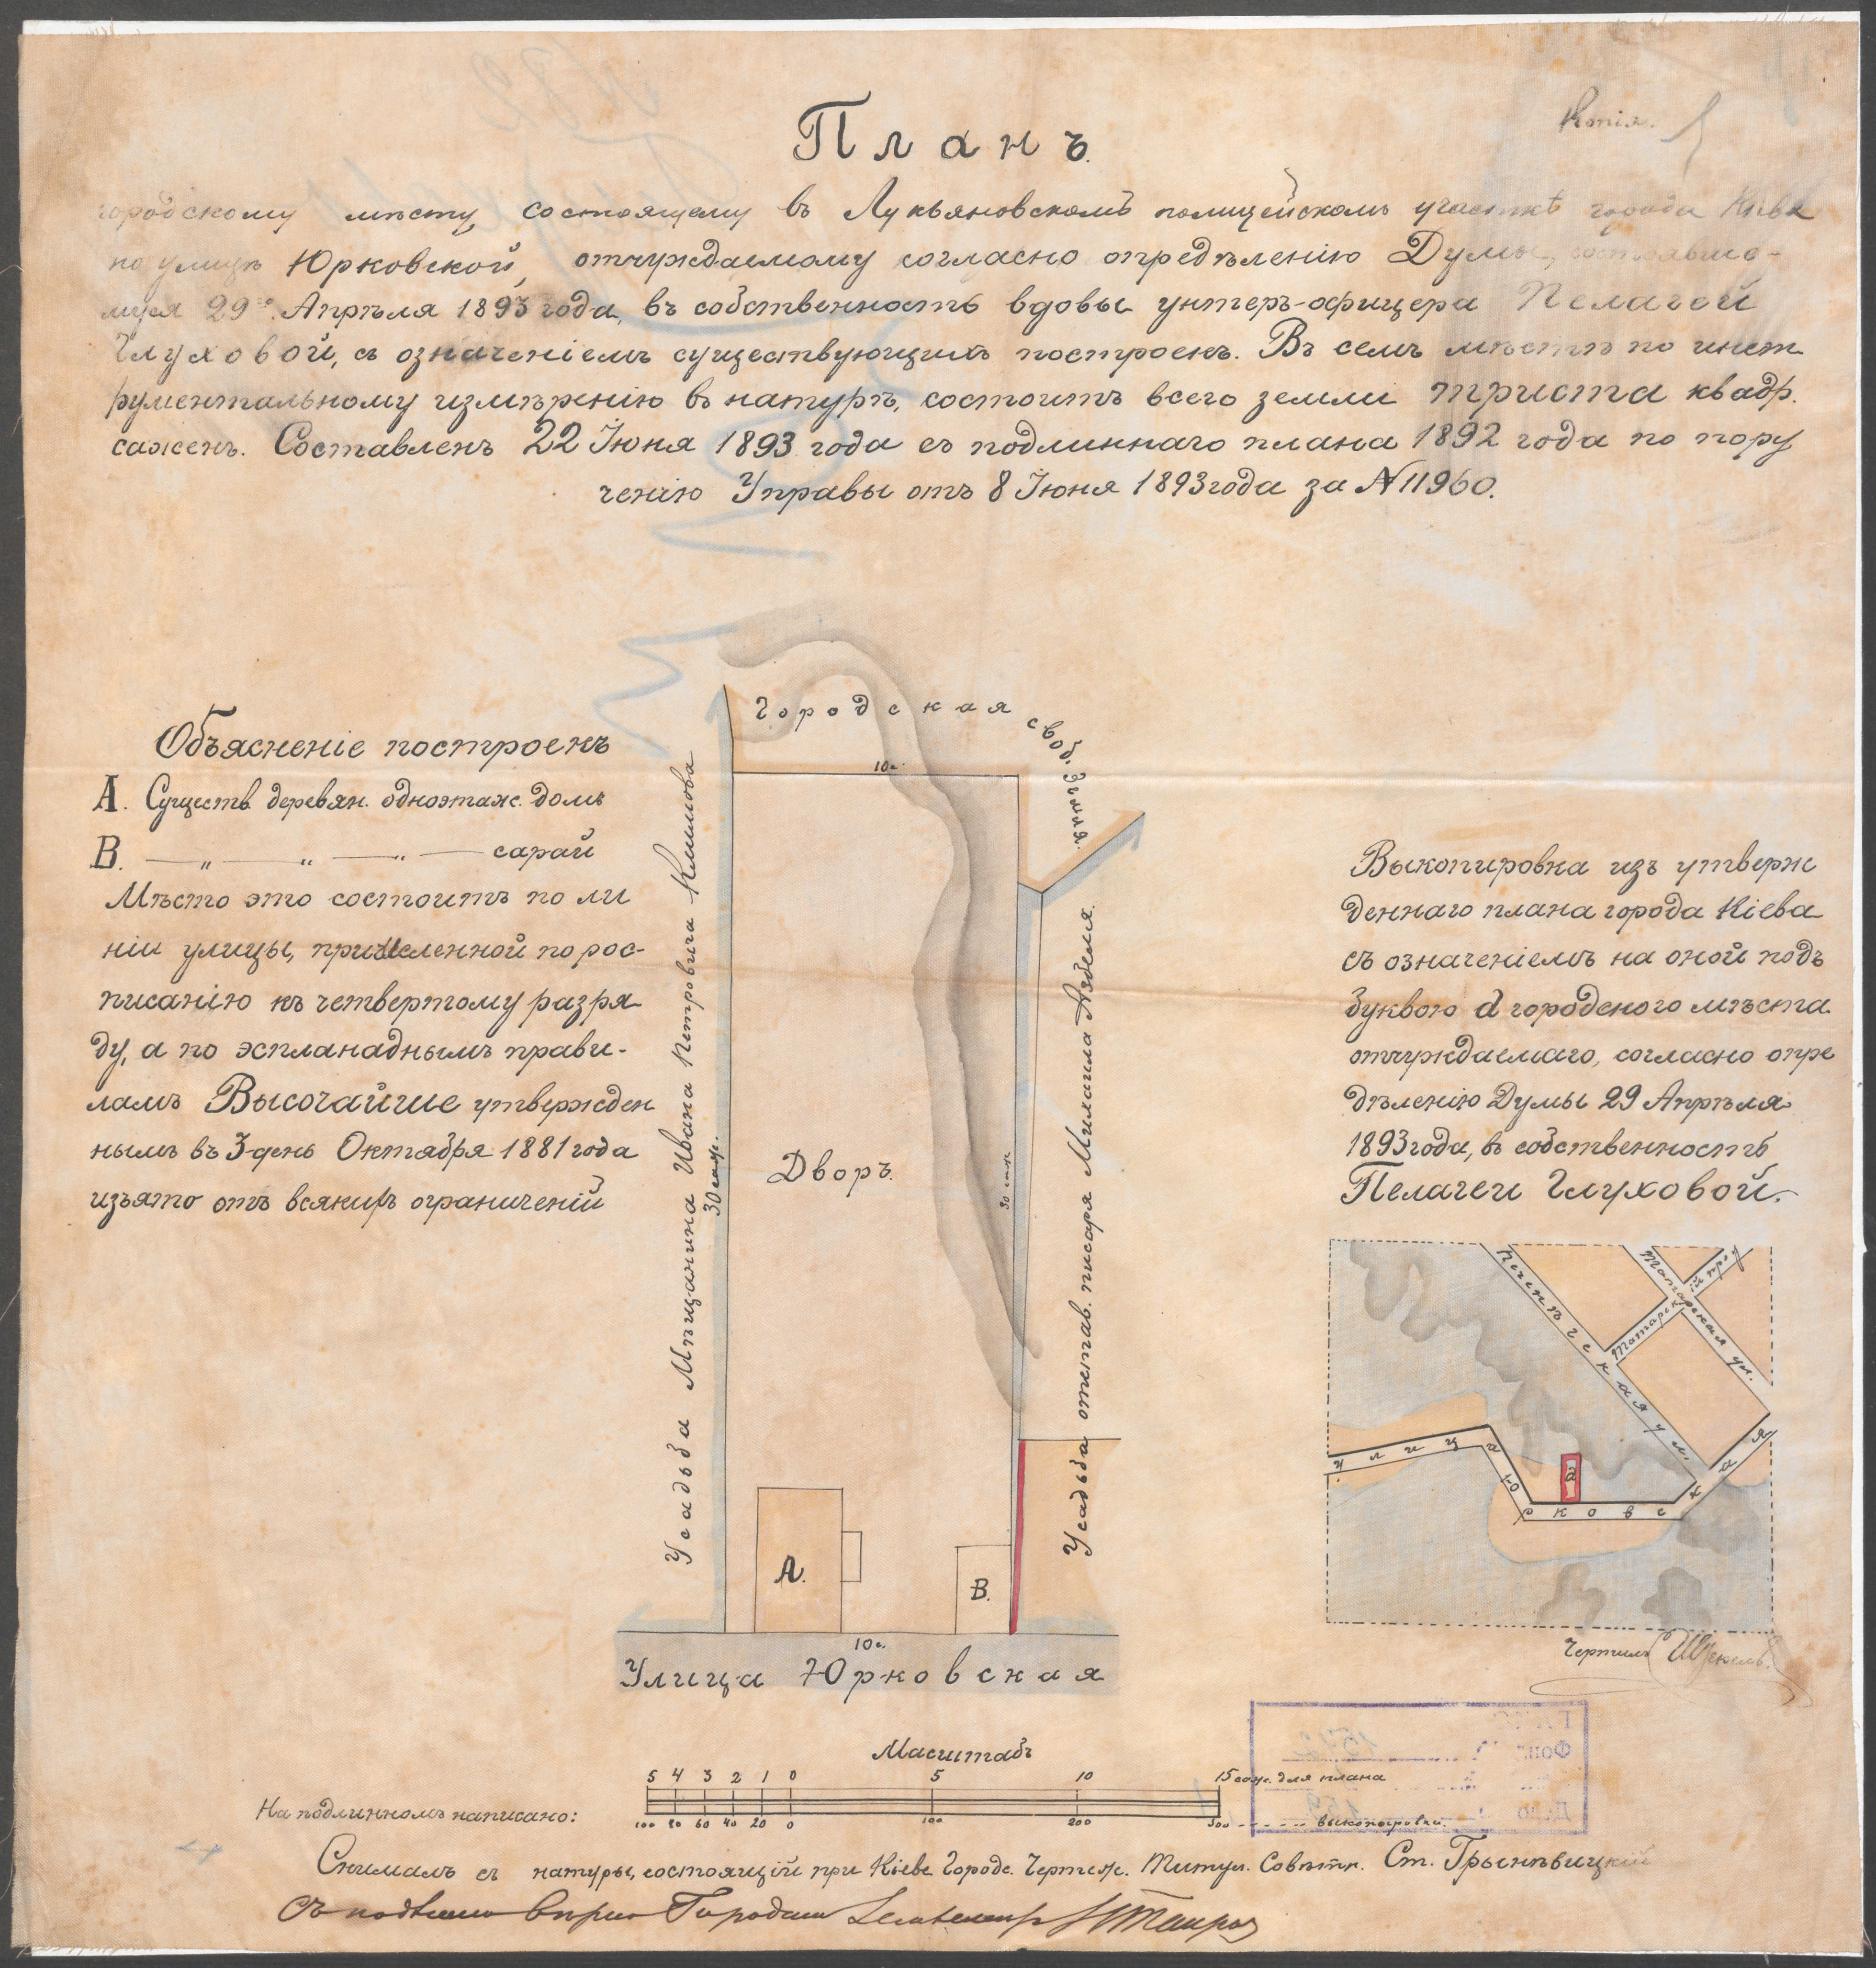 Копія.
Планъ.
городскому мѣсту, состоящему въ Лукьяновскомъ полицейскомъ участкѣ города Кіева
по улицѣ Юрковской, отчуждаемому согласно опредѣленію Думы, состоявше-
муся 29го Апрѣля 1893 года, въ собственность вдовы унтеръ-офицера Пелагеи
Глуховой, съ означеніемъ существующихъ построекъ. Въ семъ мѣстѣ по инст
рументальному измѣренію въ натурѣ, состоитъ всего земли триста квадр.
сажень. Составленъ 22 Іюня 1893 года съ подлиннаго плана 1892 года по пору
ченію Управы отъ 8 Іюня 1893 года за № 11960.
Объясненіе построекъ
А. Существ. деревян. одноэтаж. домъ
В. — „ — „ — „ — сарай
Мѣсто это состоитъ по ли
ніи улицы, причисленной по рос-
писанію къ четвертому разря
ду, а по эспланаднымъ прави-
ламъ Высочайше утвержден
нымъ въ 3 день Октября 1881 года
изъято отъ всякихъ ограниченій
Городская своб. земля.
10 с.
Усадьба Мѣщанина Ивана Петровича Климова
30 саж.
Дворъ.
30 саж.
Усадьба отстав. писаря Михаила Азбеля.
А.
В.
10 с.
Улица Юрковская
Выкопировка изъ утверж
деннаго плана города Кіева
съ означеніемъ на оной подъ
буквою а городского мѣста
отчуждаемаго, согласно опре
дѣленію Думы 29 Апрѣля
1893 года, въ собственность
Пелагеи Глуховой.
Кагенѣгская ул.
Татарская ул.
Татарскій пр.
улица Юрковская
а
Чертилъ
Масштабъ
5 4 3 2 1 0 5 10 15 саж. для плана
100 80 60 40 20 0 100 200 300 - - - - - выкопировки.
На подлинномъ написано:
Снималъ съ натуры, состоящій при Кіевс. Городс. Чертеж. Титул. Совѣтн. Ст. Грынѣвицкій
Съ подлин. вѣрно Городской Землемѣръ